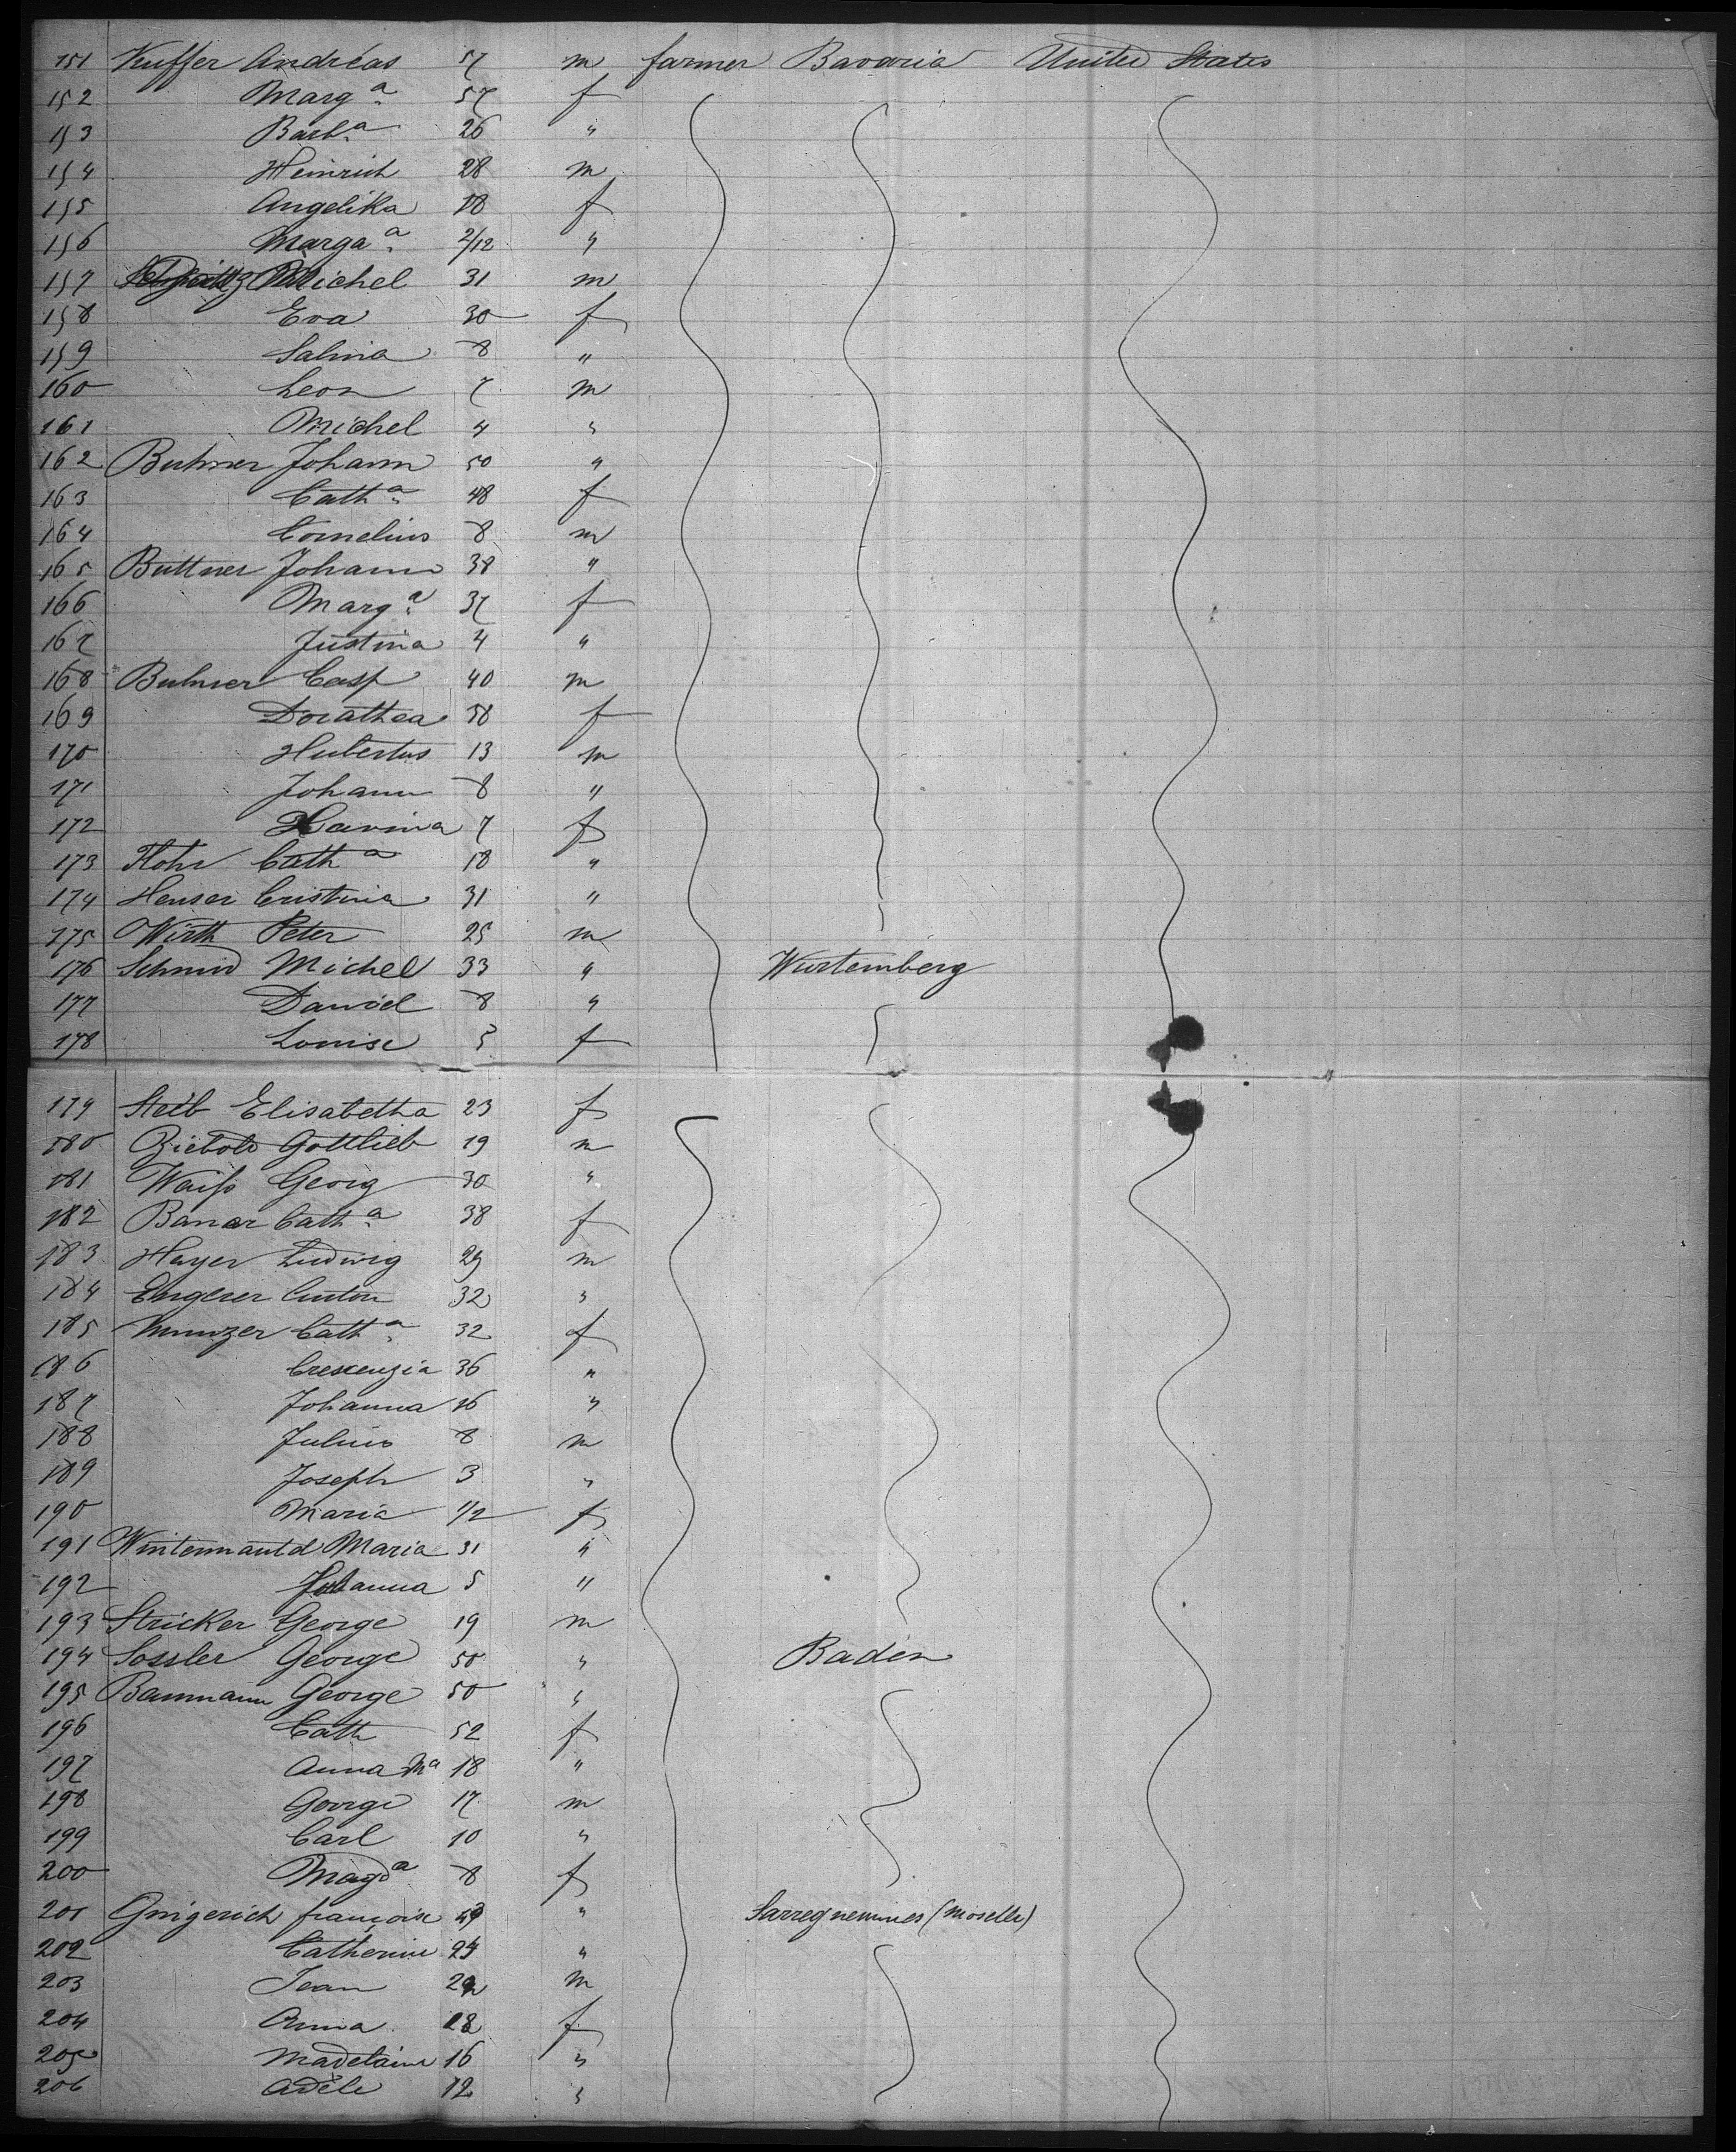 151 Kuffer Andreas 57 m farmer Bavaria United States
152 Marg a 57 f
153 Barb a 26 "
154 Heinrich 28 m
155 Angelika 18 f
156 Marga a 2/12 "
157 Michel 31 m
158 Eva 30 f
159 Salina 8 "
160 Leon 7 m
161 Michel 4 "
162 Buhner Johann 50 "
163 Cath a 48 f
164 Cornelius 8 m
165 Buttner Johann 38 "
166 Marg a 37 f
167 Justina 4 "
168 Buhner Casp 40 m
169 Dorathea 38 f
170 Hubertus 13 m
171 Johann 8 "
172 7 f
173 Flohr Cath a 18 "
174 Henser Cristina 31 "
175 Wirth Peter 25 m
176 Schmid Michel 33 " Wurtemberg
177 Daniel 8 "
178 Louise 5 f
179 Steib Elisabetha 23 f
180 Ziebold Gottlieb 19 m
181 Waiss Georg 30 "
182 Banar Cath a 38 f
183 Hayer Ludwig 29 m
184 Engerer Anton 32 "
185 Munzer Cath a 32 f
186 Crescenzia 36 "
187 Johanna 16 "
188 Julius 8 m
189 Joseph 3 "
190 Maria 1/2 f
191 Wintermantel Maria 31 "
192 Johanna 5 "
193 Stricker George 19 m
194 Sossler George 50 " Baden
195 Baumann George 50 "
196 Cath 52 f
197 Anna Ma 18 "
198 George 17 m
199 Carl 10 "
200 Magd a 8 f
201 Gingerich françoise 49 " Sarreguemines (Moselle)
202 Catherine 24 "
203 Jean m
204 Anna 18 f
205 Madelaine 16 "
206 Adèle 12 "